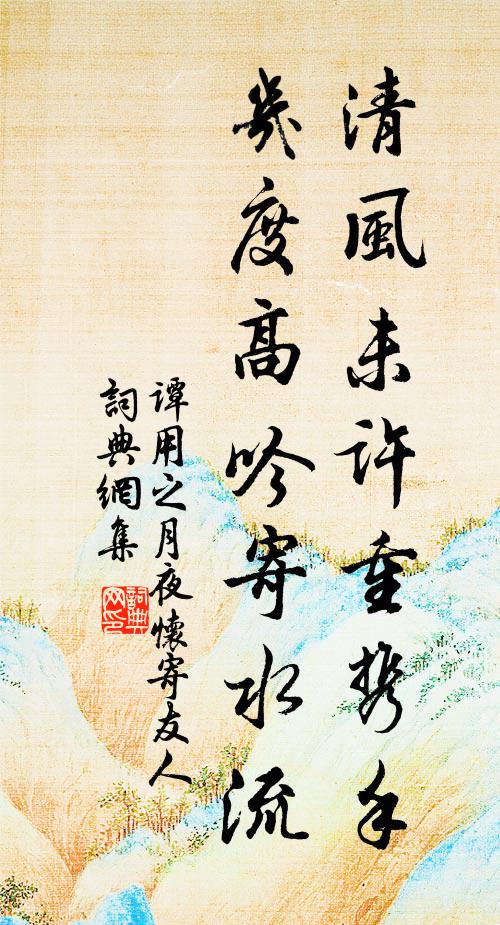 清風未許重携手
幾度高吟寄水流
譚用之月夜懷寄友人
詞典網集
詞典網印